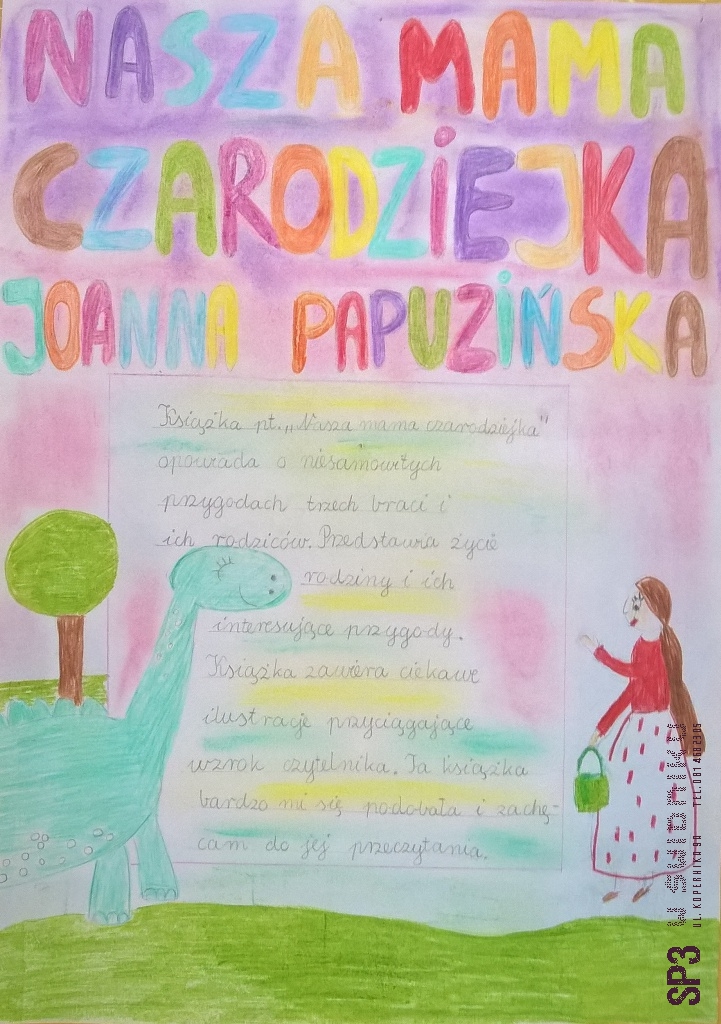 NASZA MAMA
CZARODZIEJKA
JOANNA PAPUZIŃSKA
Książka pt. „Nasza mama czarodziejka"
opowiada o niesamowitych
przygodach trzech braci i
ich rodziców. Przedstawia życie
rodziny i ich
interesujące przygody.
Książka zawiera ciekawe
ilustracje przyciągające
wzrok czytelnika. Ta książka
bardzo mi się podobała i zachę-
cam do jej przeczytania.
SP3 W
UL. KOPERNIKA 9A TEL.